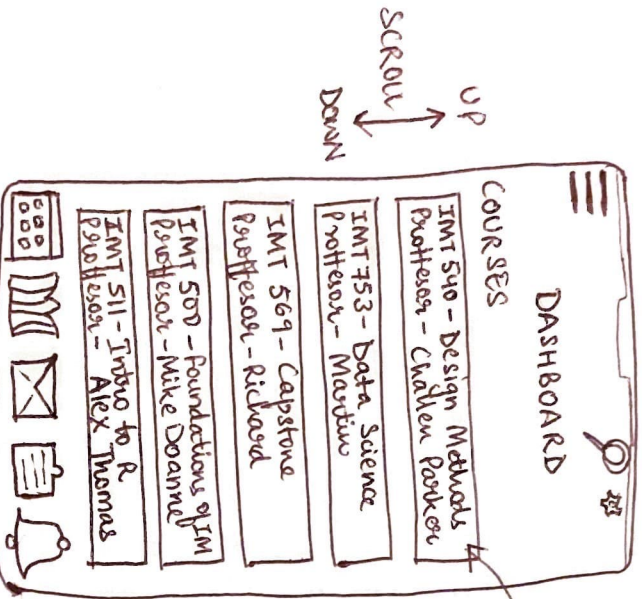 UP
SCROLL
DOWN
DASHBOARD
COURSES
IMT 540 - Design Methods
Proffesor - Challen Parker
IMT 753 - Data Science
Proffesor - Martin
IMT 569 - Capstone
Proffesor - Richard
IMT 500 - Foundations of IM
Proffesor - Mike Doanne
IMT 511 - Intro to R
Proffesor - Alex Thomas